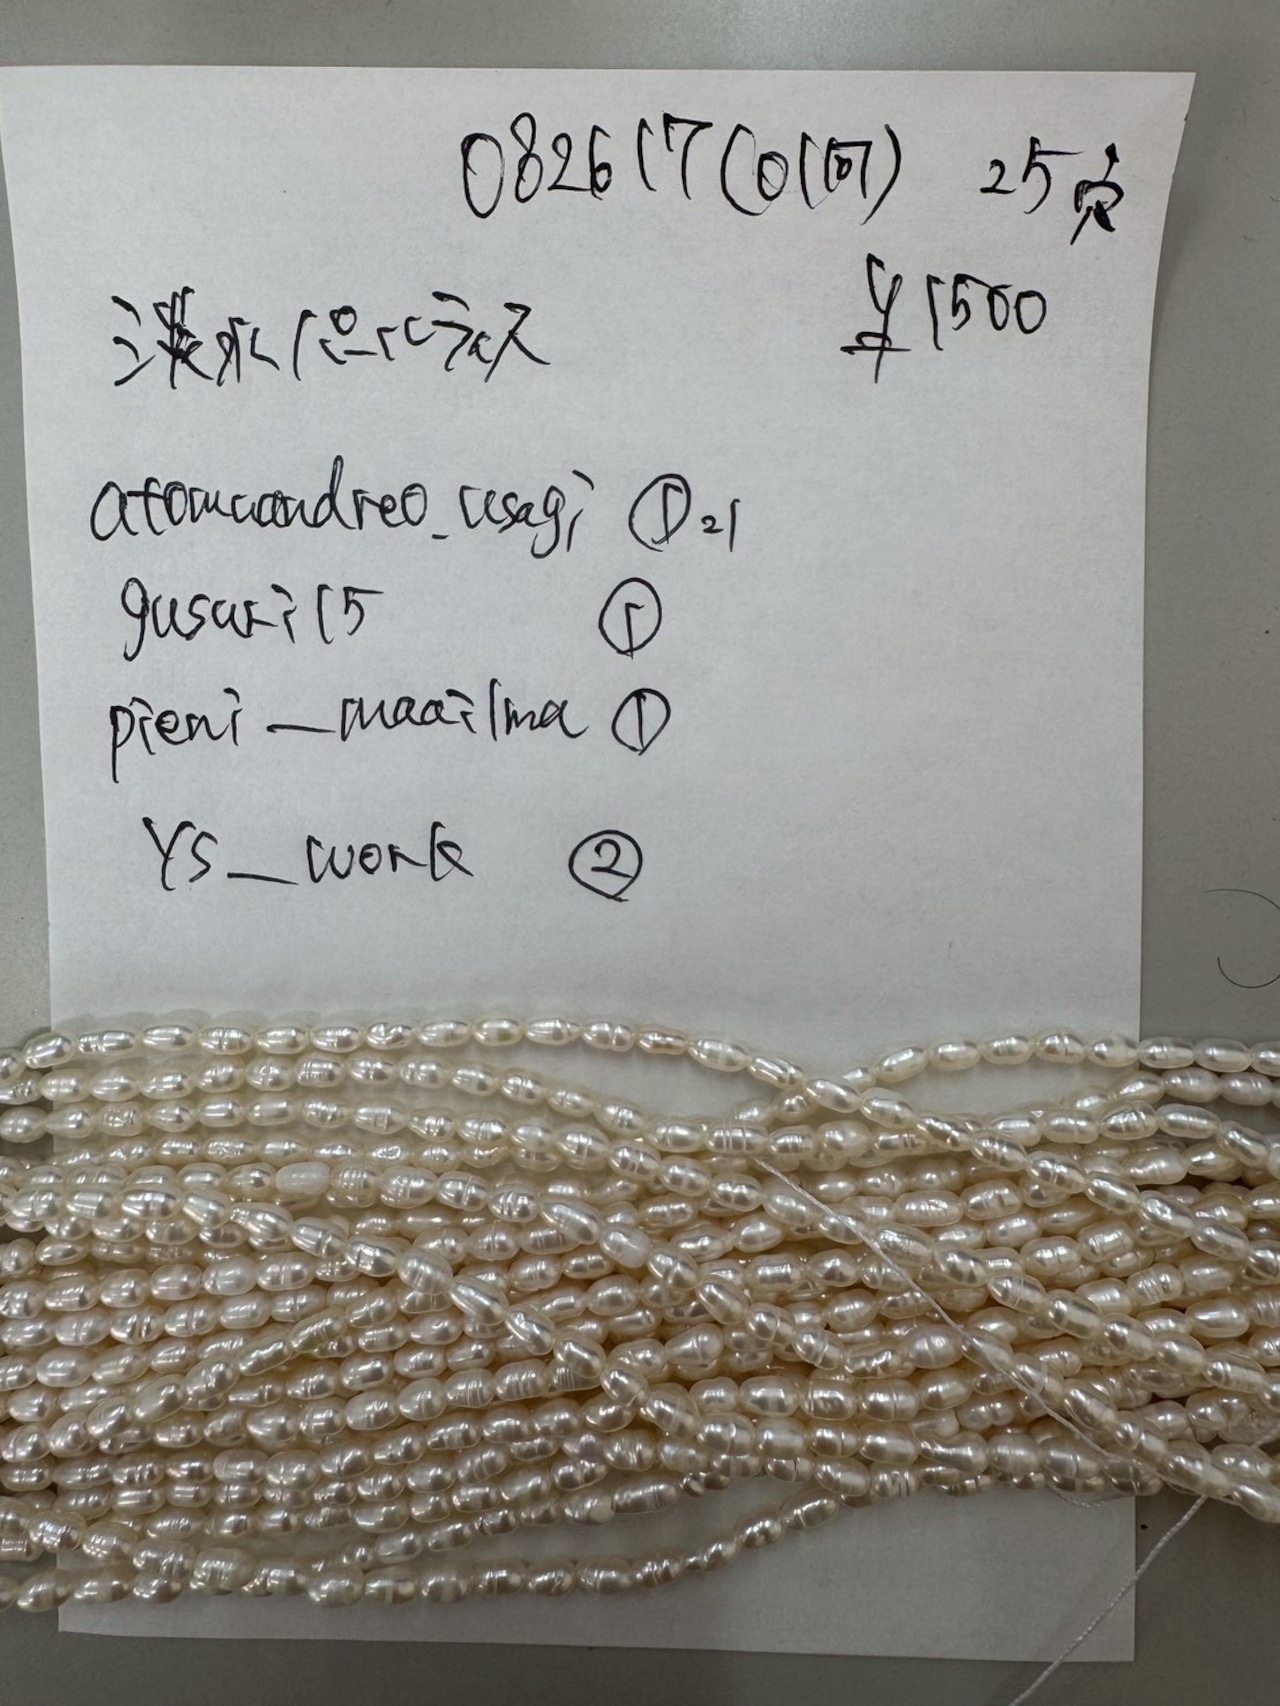 082617 (0個) 25点
¥1500
淡水パールライス
atomcandreo_usagi ① 21
gusuri15 ①
pieni_maailma ①
YS_work ②